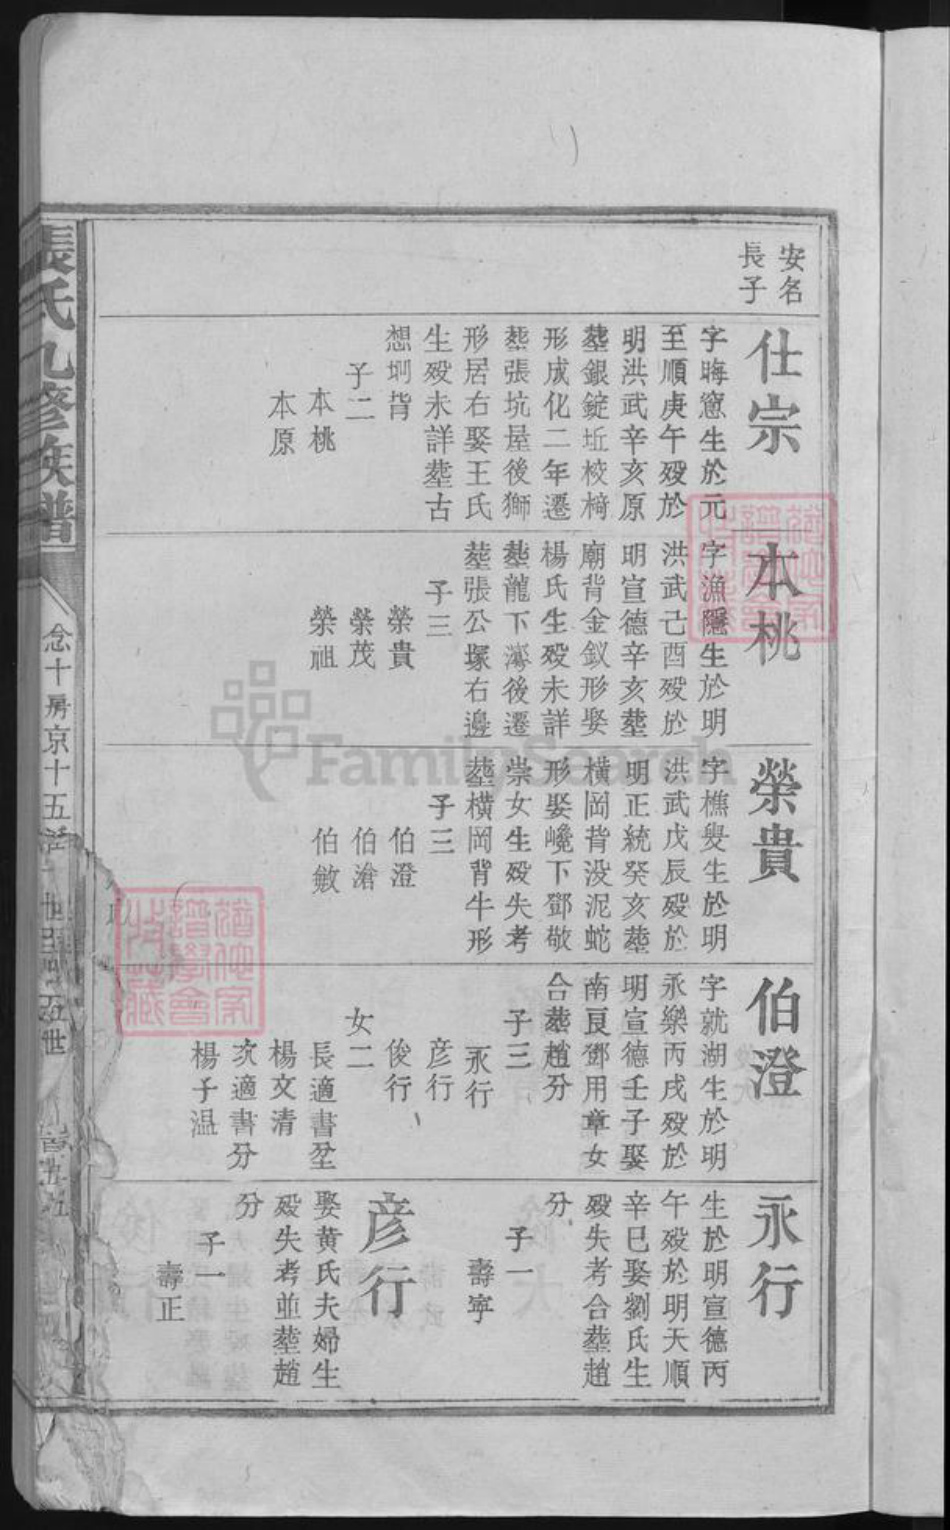 安名
長子
仕宗
字晦窓生於元
至順庚午殁於
明洪武辛亥原
塟銀錠坵校椅
形成化二年遷
塟張坑屋後獅
形居右娶王氏
生殁未詳塟古
想坰背
子二
本桃
本原
本桃
字漁隱生於明
洪武己酉殁於
明宣德辛亥塟
廟背金釵形娶
楊氏生殁未詳
塟龍下後遷
塟張公塚右邊
子三
榮貴
榮茂
榮祖
榮貴
字樵叟生於明
洪武戊辰殁於
明正統癸亥塟
橫岡背没泥蛇
形娶巉下鄧敬
崇女生殁失考
塟橫岡背牛形
子三
伯澄
伯滄
伯敏
伯澄
字就湖生於明
永樂丙戌殁於
明宣德壬子娶
南艮鄧用章女
合塟趙分
子三
永行
彦行
俊行
女二
長適書坌
楊文清
次適書分
楊子温
永行
生於明宣德丙
午殁於明天順
辛巳娶劉氏生
殁失考合塟趙
分
子一
壽寧
彦行
娶黄氏夫婦生
殁失考並塟趙
分
子一
壽正
張氏九修族譜
念十房京十五
世
五世
FamilySearch